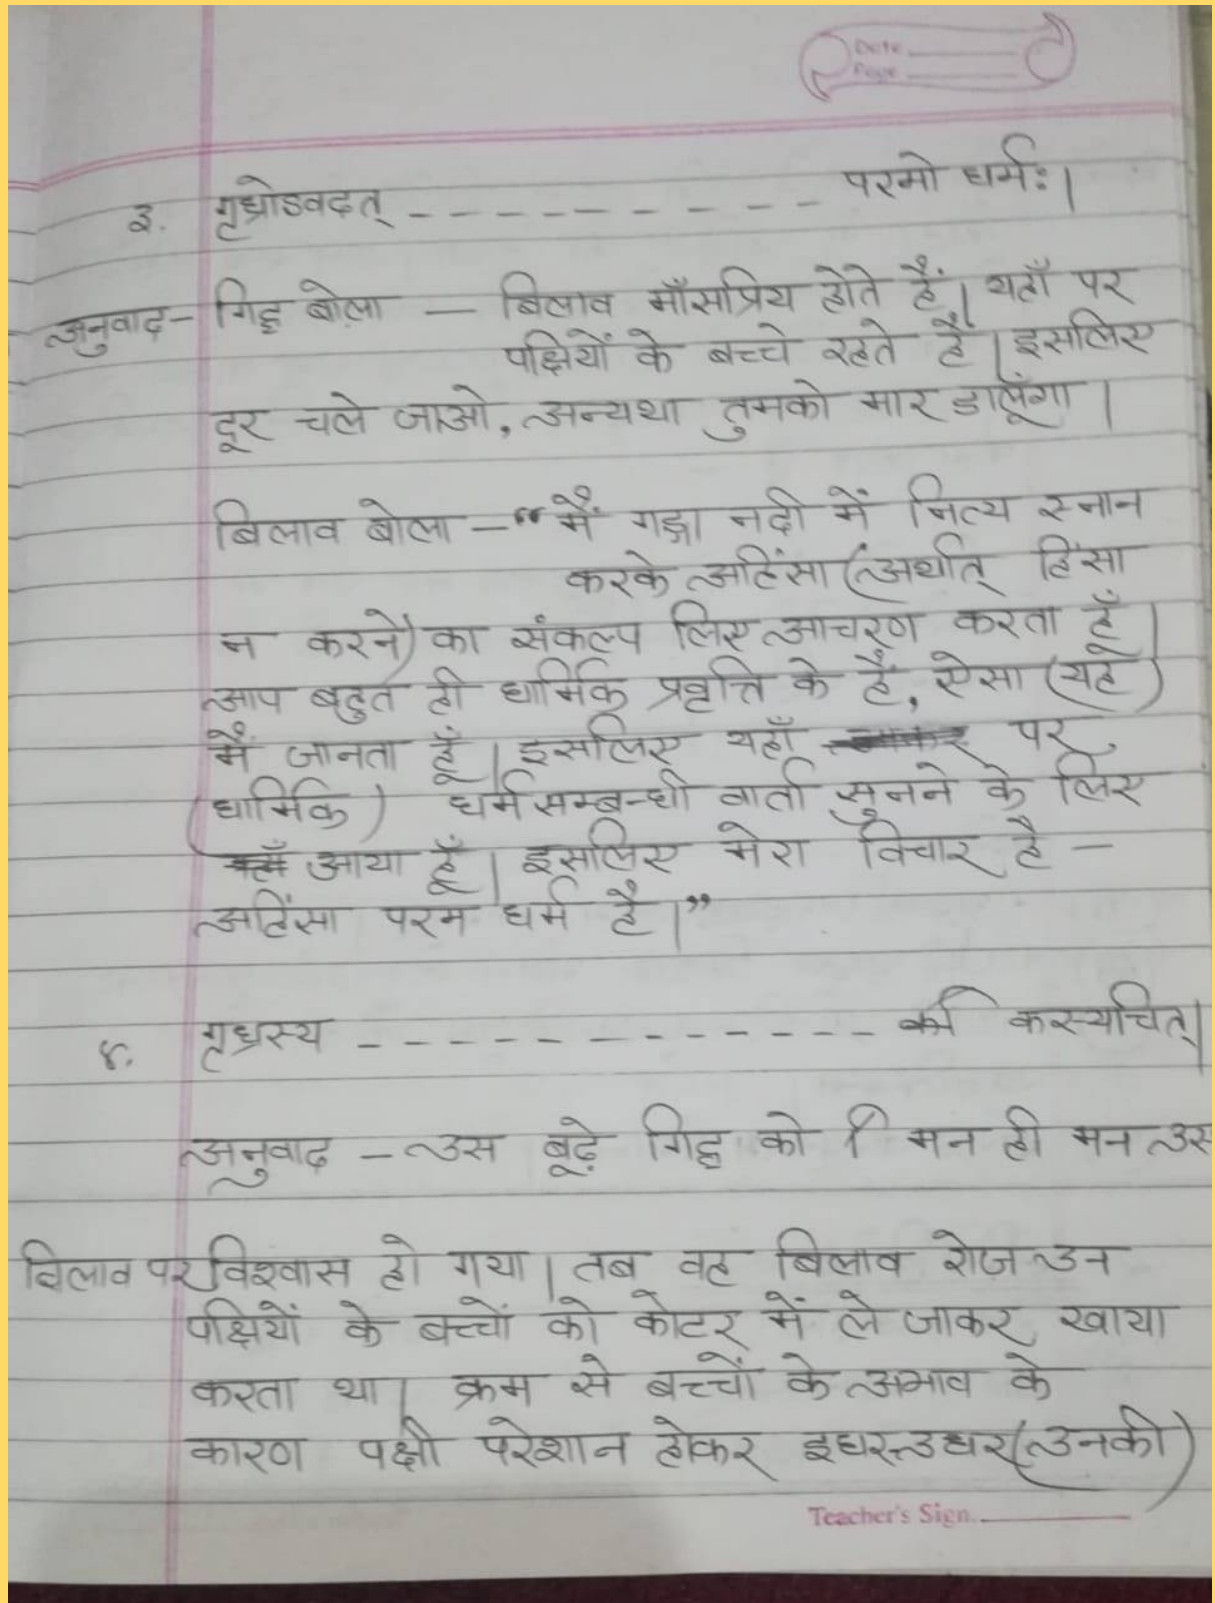 Date
Page
३. गृध्रोऽवदत् - - - - - - - - - - परमो धर्मः।
अनुवाद- गिद्ध बोला — बिलाव माँसप्रिय होते हैं। यहाँ पर
पक्षियों के बच्चे रहते हैं। इसलिए
दूर चले जाओ, अन्यथा तुमको मार डालूंगा।
बिलाव बोला -“मैं गङ्गा नदी में नित्य स्नान
करके अहिंसा (अर्थात् हिंसा
न करने) का संकल्प लिए आचरण करता हूँ।
आप बहुत ही धार्मिक प्रवृत्ति के हैं, ऐसा (यह)
मैं जानता हूँ। इसलिए यहाँ पर
(धार्मिक) धर्म सम्बन्धी वार्ता सुनने के लिए
आया हूँ। इसलिए मेरा विचार है -
अहिंसा परम धर्म है।”
४. गृध्रस्य - - - - - - - - - - - - कस्यचित्।
अनुवाद - उस बूढ़े गिद्ध को मन ही मन उस
बिलाव पर विश्वास हो गया। तब वह बिलाव रोज उन
पक्षियों के बच्चों को कोटर में ले जाकर खाया
करता था। क्रम से बच्चों के अभाव के
कारण पक्षी परेशान होकर इधर-उधर (उनकी)
Teacher's Sign.